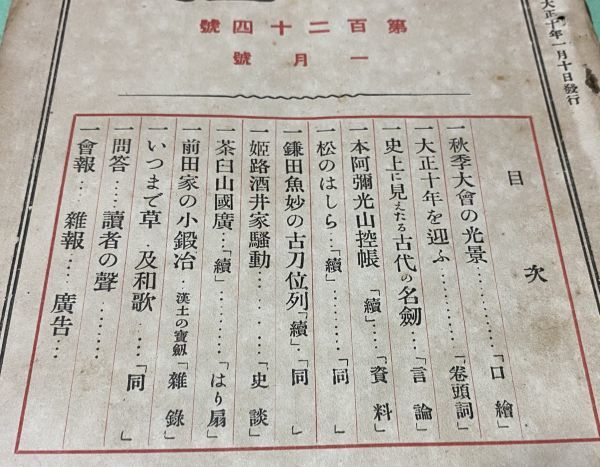 第百二十四號
一月號
大正十年一月十日發行
目次
一 秋季大會の光景…………「口繪」
一 大正十年を迎ふ………「卷頭詞」
一 史上に見えたる古代の名劒……「言論」
一 本阿彌光山控帳「續」……「資料」
一 松のはしら…「續」………「同」
一 鎌田魚妙の古刀位列「續」…「同」
一 姬路酒井家騷動………「史談」
一 茶臼山國廣…「續」………「はり扇」
一 前田家の小鍛冶‥漢土の寶劒‥「雜錄」
一 いつまで草 及和歌……「同」
一 問答……讀者の聲………
一 會報……雜報……廣告…